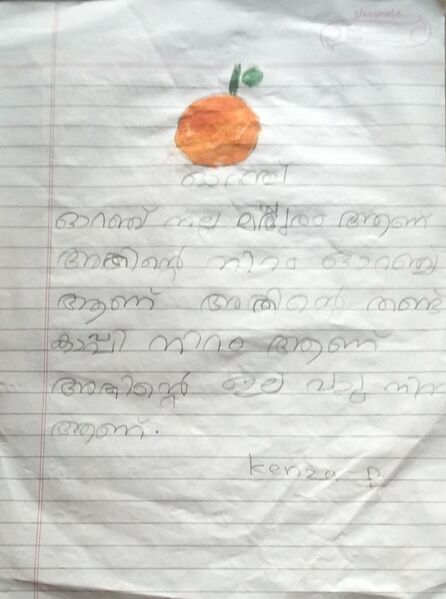 classmate
ഓറഞ്ച്
ഓറഞ്ച് നല്ല മധുരം ആണ്
അതിന്റെ നിറം ഓറഞ്ച്
ആണ് അതിന്റെ തണ്ട്
കാപ്പി നിറം ആണ്
അതിന്റെ ഇല പച്ച നിറ
ആണ്.
kenza P